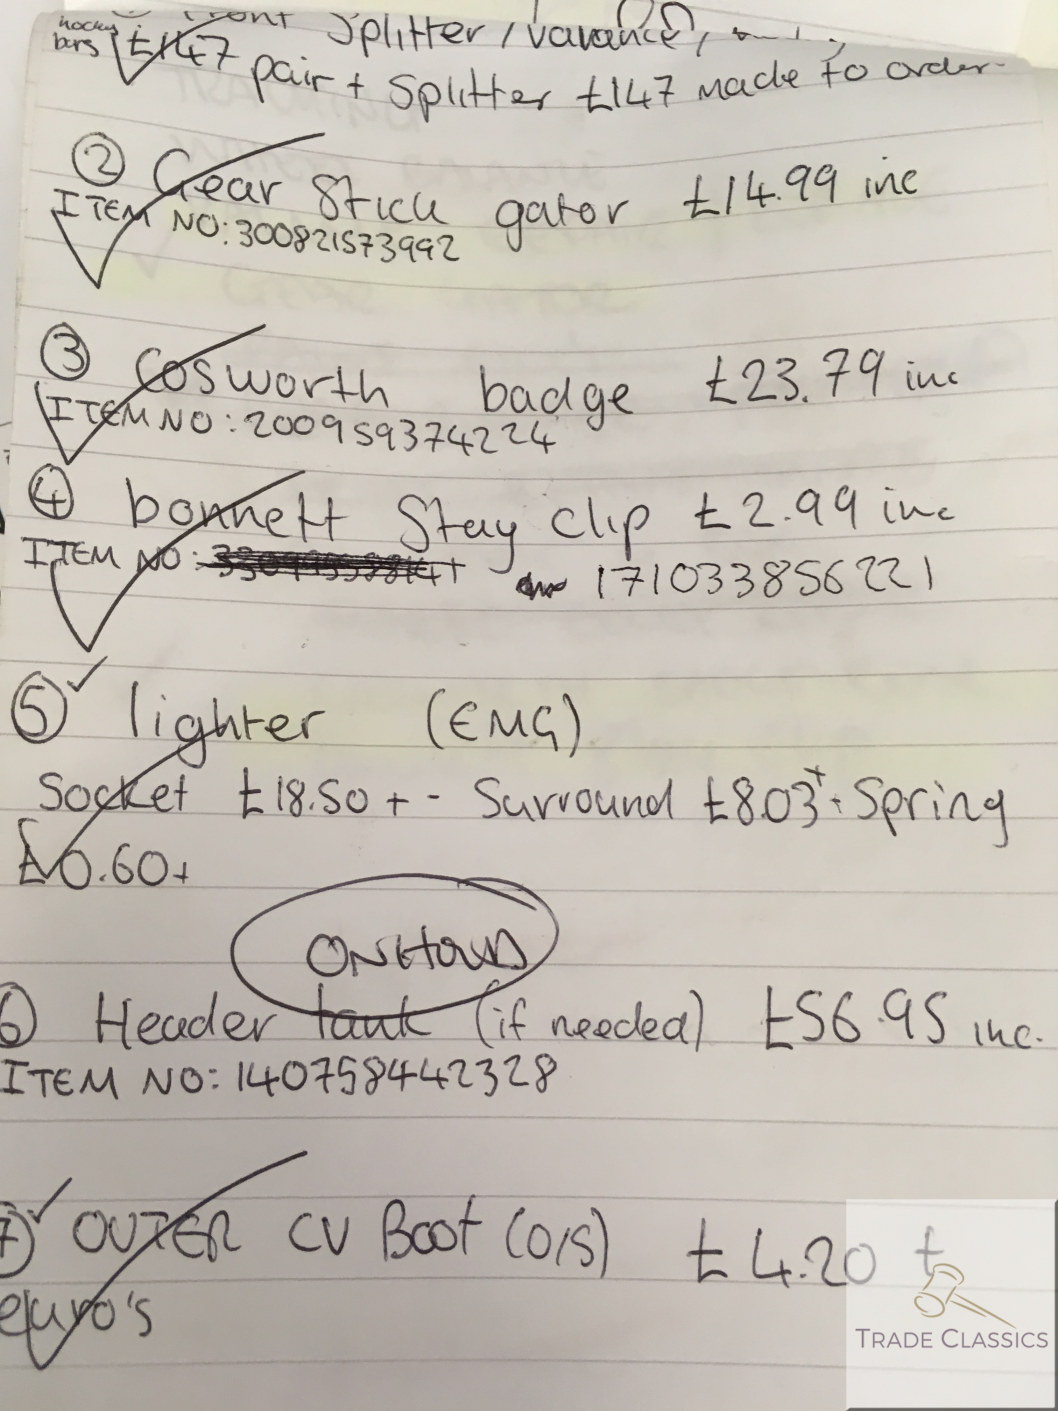 Front Splitter /
bars £147 pair + Splitter £147 made to order
② Gear Stick gator £14.99 inc
ITEM NO: 300821573992
③ Cosworth badge £23.79 inc
ITEM NO: 200959374224
④ bonnett Stay clip £2.99 inc
ITEM NO: 171033856221
⑤ lighter (EMG)
Socket £18.50 + - Surround £8.03 + Spring
£0.60+
ON HOLD
⑥ Header tank (if needed) £56.95 inc.
ITEM NO: 140758442328
⑦ OUTER CV Boot (O/S) £4.20 t
euro's
TRADE CLASSICS